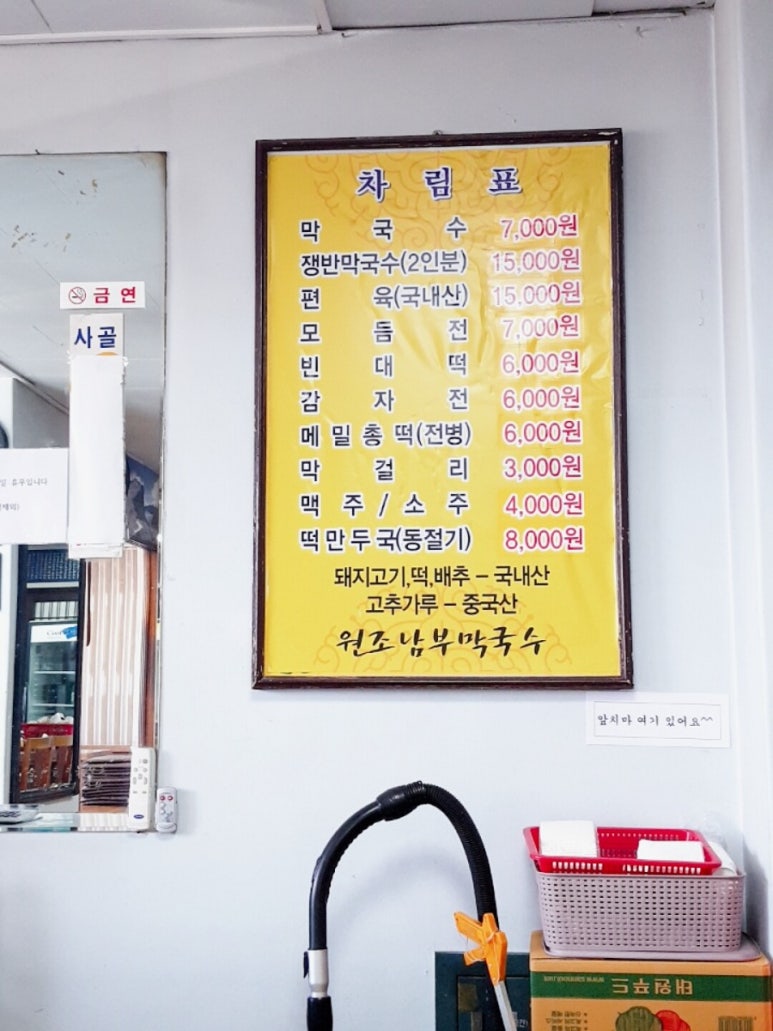 차 림 표
막 국 수 7,000원
쟁반막국수(2인분) 15,000원
편 육(국내산) 15,000원
모 듬 전 7,000원
빈 대 떡 6,000원
감 자 전 6,000원
메 밀 총 떡(전병) 6,000원
막 걸 리 3,000원
맥 주 / 소 주 4,000원
떡 만 두 국(동절기) 8,000원
돼지고기,떡,배추 – 국내산
고추가루 – 중국산
원조남부막국수
금 연
사골
휴무입니다
앞치마 여기 있어요^^
태원푸드